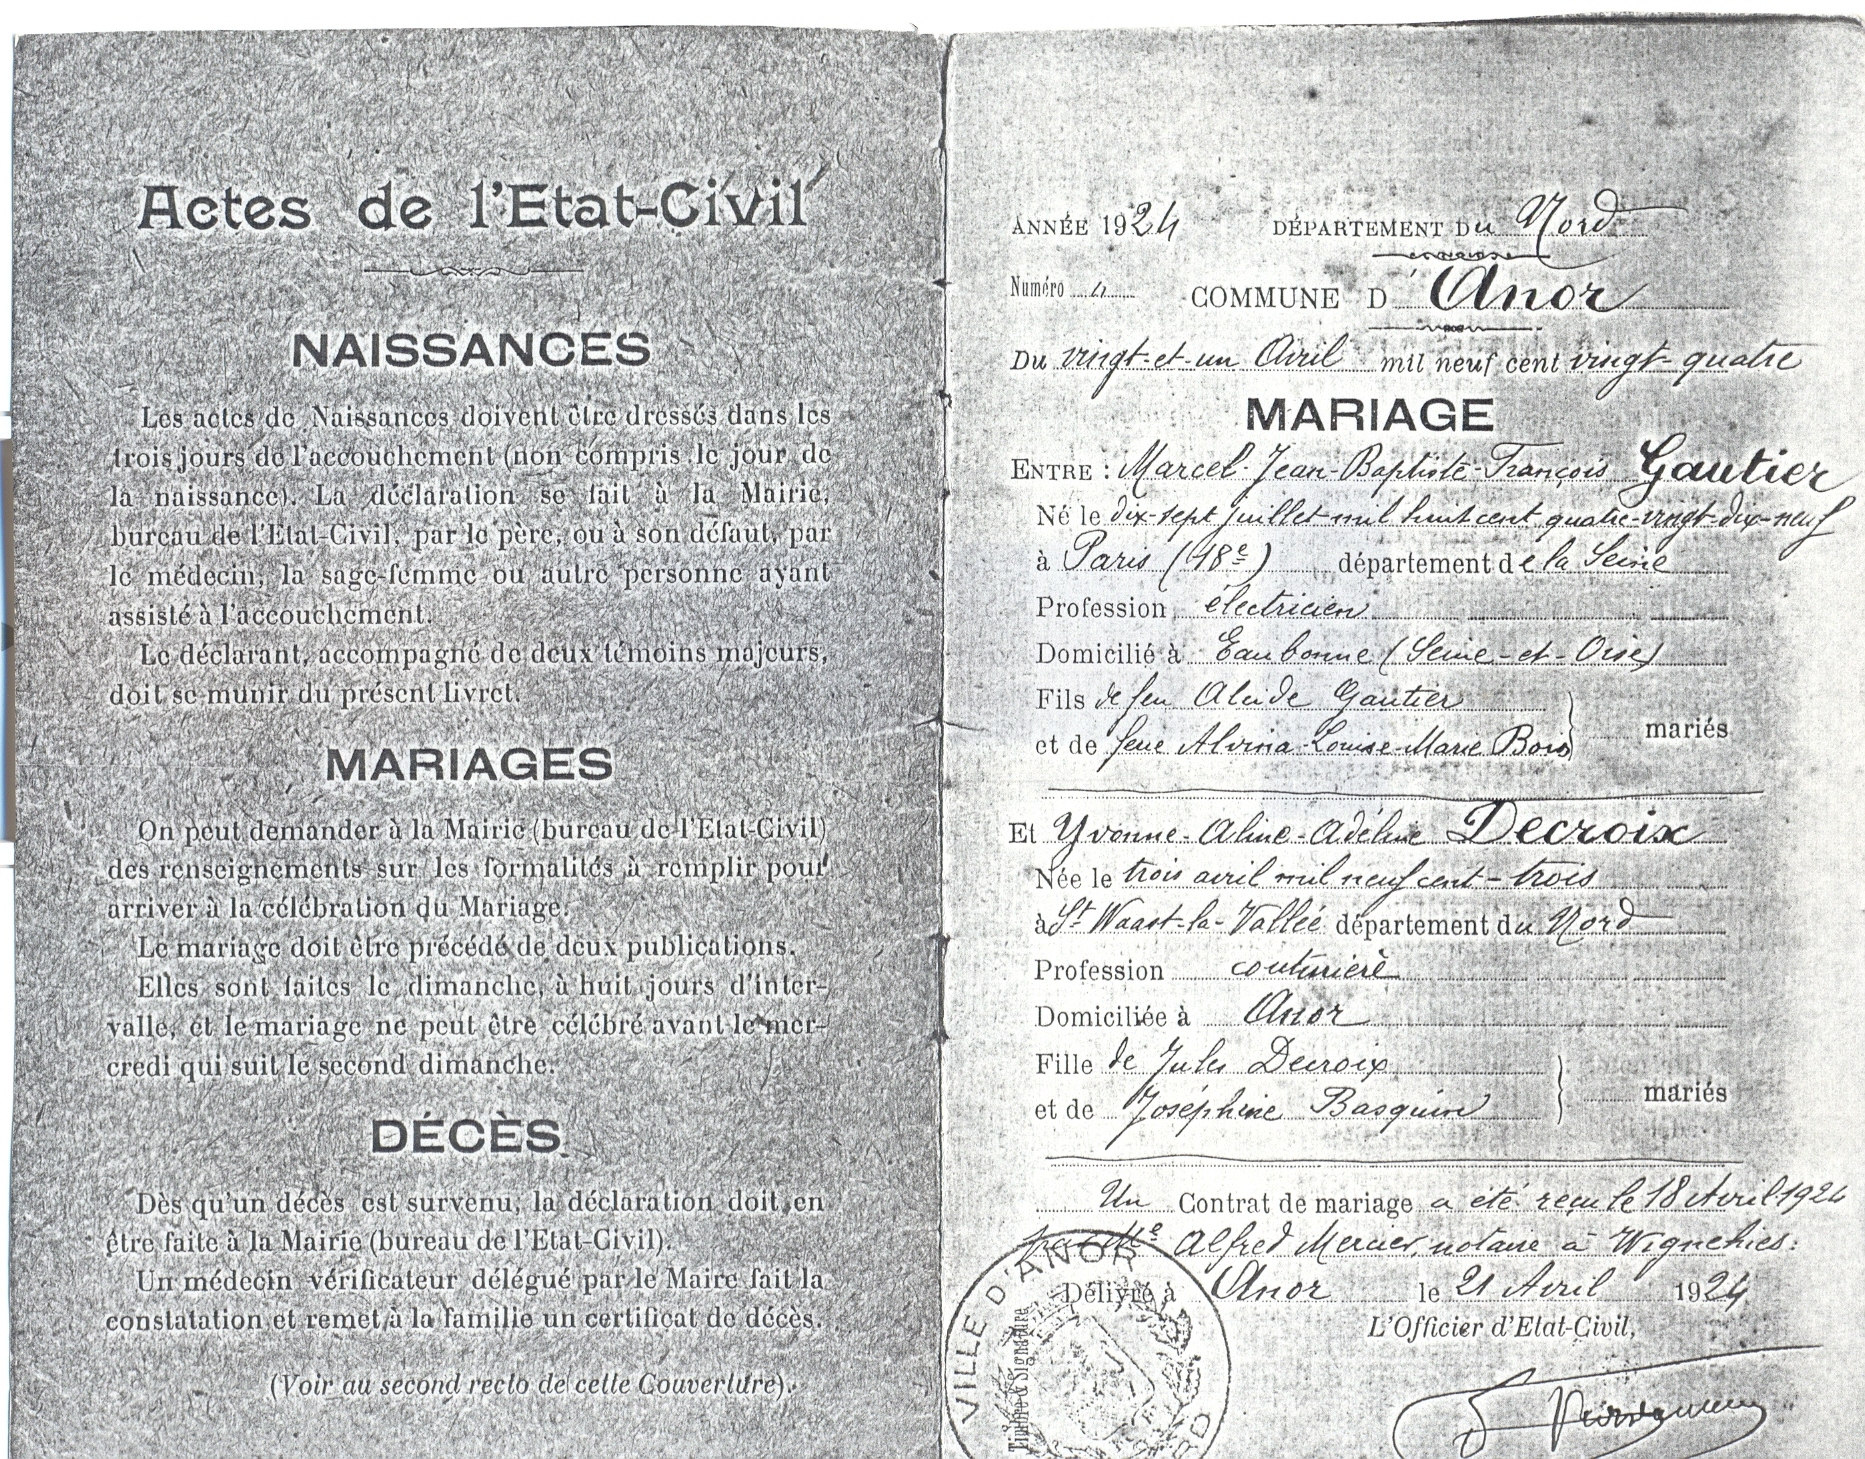 Actes de l'Etat-Civil
NAISSANCES
Les actes de Naissances doivent être dressés dans les
trois jours de l'accouchement (non compris le jour de
la naissance). La déclaration se fait à la Mairie,
bureau de l'Etat-Civil, par le père, ou à son défaut, par
le médecin, la sage-femme ou autre personne ayant
assisté à l'accouchement.
Le déclarant, accompagné de deux témoins majeurs,
doit se munir du présent livret.
MARIAGES
On peut demander à la Mairie (bureau de l'Etat-Civil)
des renseignements sur les formalités à remplir pour
arriver à la célébration du Mariage.
Le mariage doit être précédé de deux publications.
Elles sont faites le dimanche, à huit jours d'inter-
valle, et le mariage ne peut être célébré avant le mer-
credi qui suit le second dimanche.
DÉCÈS
Dès qu'un décès est survenu, la déclaration doit en
être faite à la Mairie (bureau de l'Etat-Civil).
Un médecin vérificateur délégué par le Maire fait la
constatation et remet à la famille un certificat de décès.
(Voir au second recto de cette Couverture).
ANNÉE 1924 DÉPARTEMENT DU Nord
Numéro 4 COMMUNE D'Anor
Du vingt-et-un Avril mil neuf cent vingt-quatre
MARIAGE
ENTRE : Marcel-Jean-Baptiste-François Gautier
Né le dix-sept juillet mil huit cent quatre-vingt-dix-neuf
à Paris (18e) département de la Seine
Profession électricien
Domicilié à Eaubonne (Seine-et-Oise)
Fils de feu Alcide Gautier
et de feue Alvina-Louise-Marie Bois
mariés
Et Yvonne-Aline-Adéline Decroix
Née le trois avril mil neuf cent-trois
à St Waast-la-Vallée département du Nord
Profession couturière
Domiciliée à Anor
Fille de Jules Decroix
et de Joséphine Basquin
mariés
Un Contrat de mariage a été reçu le 18 Avril 1924
par Me Alfred Mercier, notaire à Wignehies.
Délivré à Anor le 21 Avril 1924
L'Officier d'Etat-Civil,
VILLE D'ANOR
Timbre & Signature